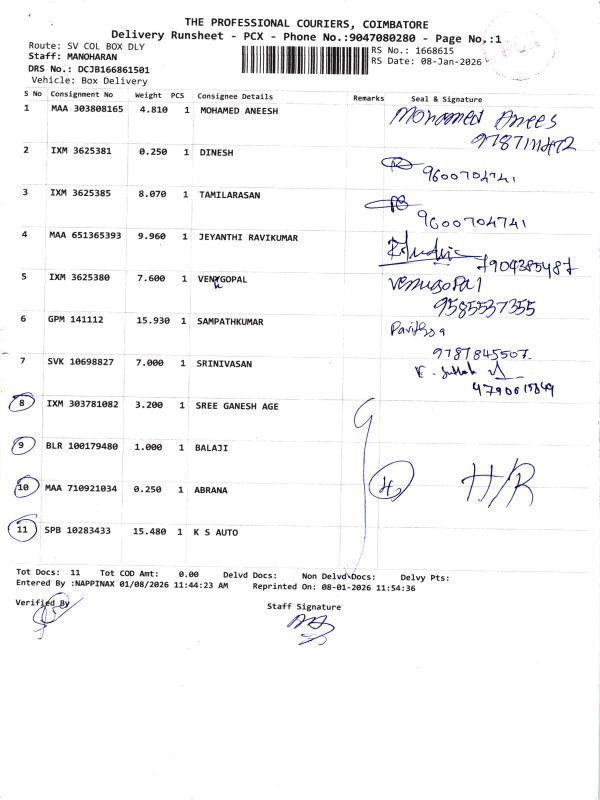 THE PROFESSIONAL COURIERS, COIMBATORE
Delivery Runsheet - PCX - Phone No.:9047080280 - Page No.:1
Route: SV COL BOX DLY
RS No.: 1668615
Staff: MANOHARAN
RS Date: 08-Jan-2026
DRS No.: DCJB166861501
Vehicle: Box Delivery
S No Consignment No Weight PCS Consignee Details Remarks Seal & Signature
1 MAA 303808165 4.810 1 MOHAMED ANEESH Mohamed Anees
2 IXM 3625381 0.250 1 DINESH 9600704741
3 IXM 3625385 8.070 1 TAMILARASAN 9600704741
4 MAA 651365393 9.960 1 JEYANTHI RAVIKUMAR 7904385487
5 IXM 3625380 7.600 1 VENYGOPAL Venugopal
9585537355
6 GPM 141112 15.930 1 SAMPATHKUMAR
9787845507.
7 SVK 10698827 7.000 1 SRINIVASAN
8 IXM 303781082 3.200 1 SREE GANESH AGE
9 BLR 100179480 1.000 1 BALAJI
10 MAA 710921034 0.250 1 ABRANA H/R
11 SPB 10283433 15.480 1 K S AUTO
Tot Docs: 11 Tot COD Amt: 0.00 Delvd Docs: Non Delvd Docs: Delvy Pts:
Entered By :NAPPINAX 01/08/2026 11:44:23 AM Reprinted On: 08-01-2026 11:54:36
Verified By
Staff Signature